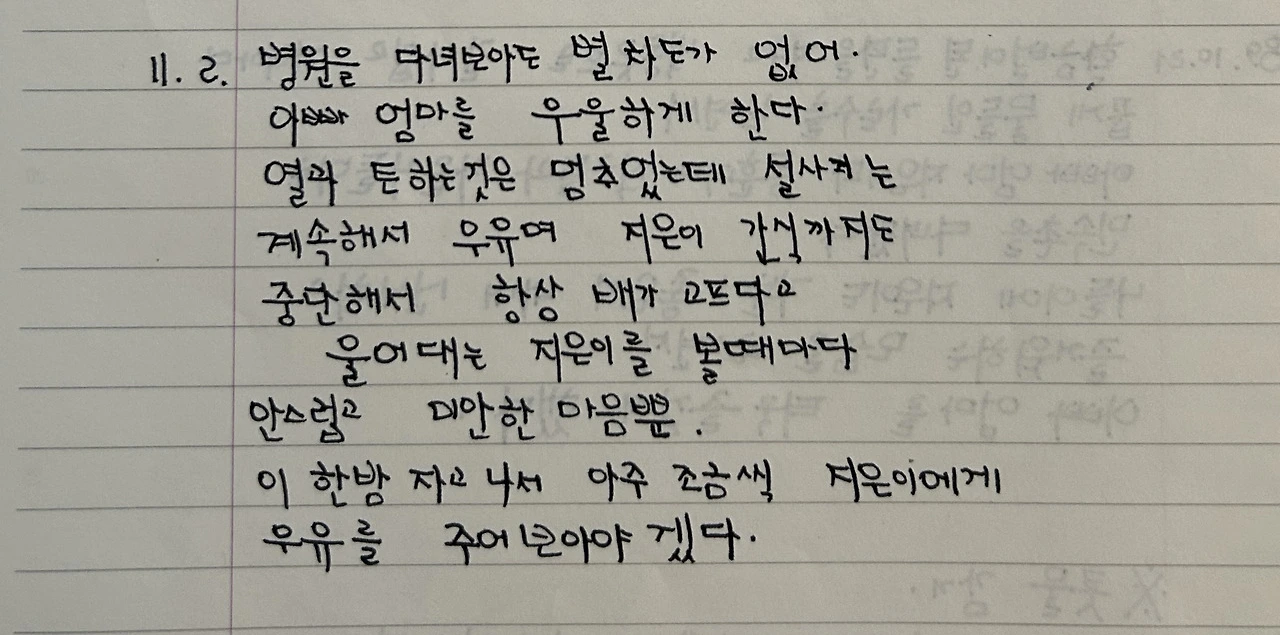 11. 2. 병원을 다녀보아도 별 차도가 없어.
아빠 엄마를 우울하게 한다.
열과 토하는것은 멈추었는데 설사끼는
계속해서 우유며 지은이 간식까지도
중단해서 항상 배가 고프다고
울어대는 지은이를 볼때마다
안스럽고 미안한 마음뿐.
이 한밤 자고 나서 아주 조금씩 지은이에게
우유를 주어보아야 겠다.